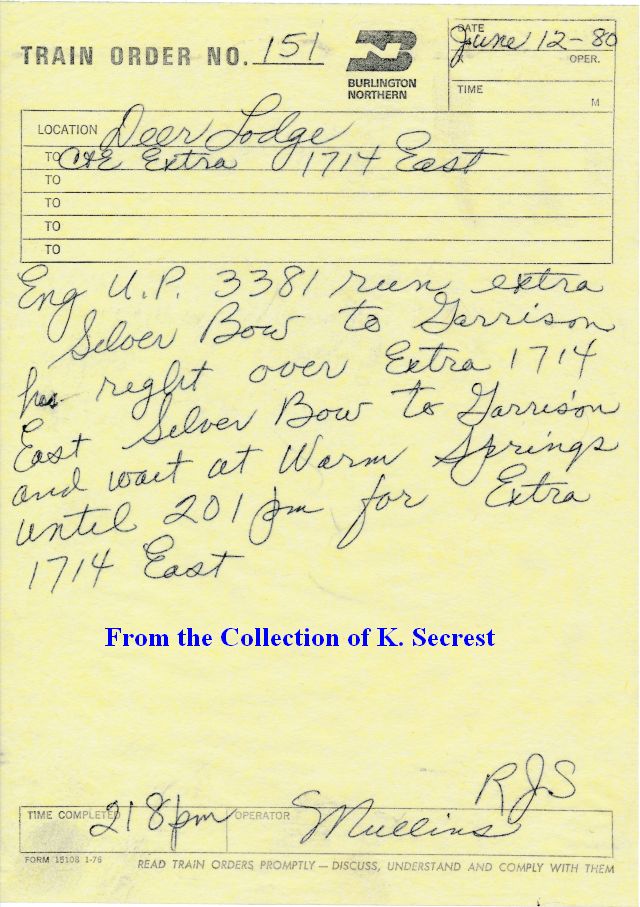 TRAIN ORDER NO. 151
BURLINGTON
NORTHERN
DATE
June 12-80
OPER.
TIME
M
LOCATION Deer Lodge
TO C&E Extra 1714 East
TO
TO
TO
TO
Eng U.P. 3381 run extra
Silver Bow to Garrison
has right over Extra 1714
East Silver Bow to Garrison
and wait at Warm Springs
until 201 pm for Extra
1714 East
From the Collection of K. Secrest
RJS
TIME COMPLETED 218pm OPERATOR Mullins
FORM 15108 1-76 READ TRAIN ORDERS PROMPTLY — DISCUSS, UNDERSTAND AND COMPLY WITH THEM